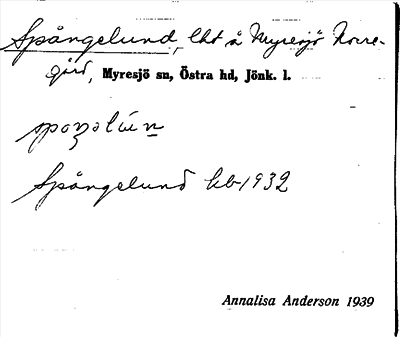 Spångelund, lht å Myresjö Norre-
gård, Myresjö sn, Östra hd, Jönk. l.
Spångelund kb 1932
Annalisa Anderson 1939